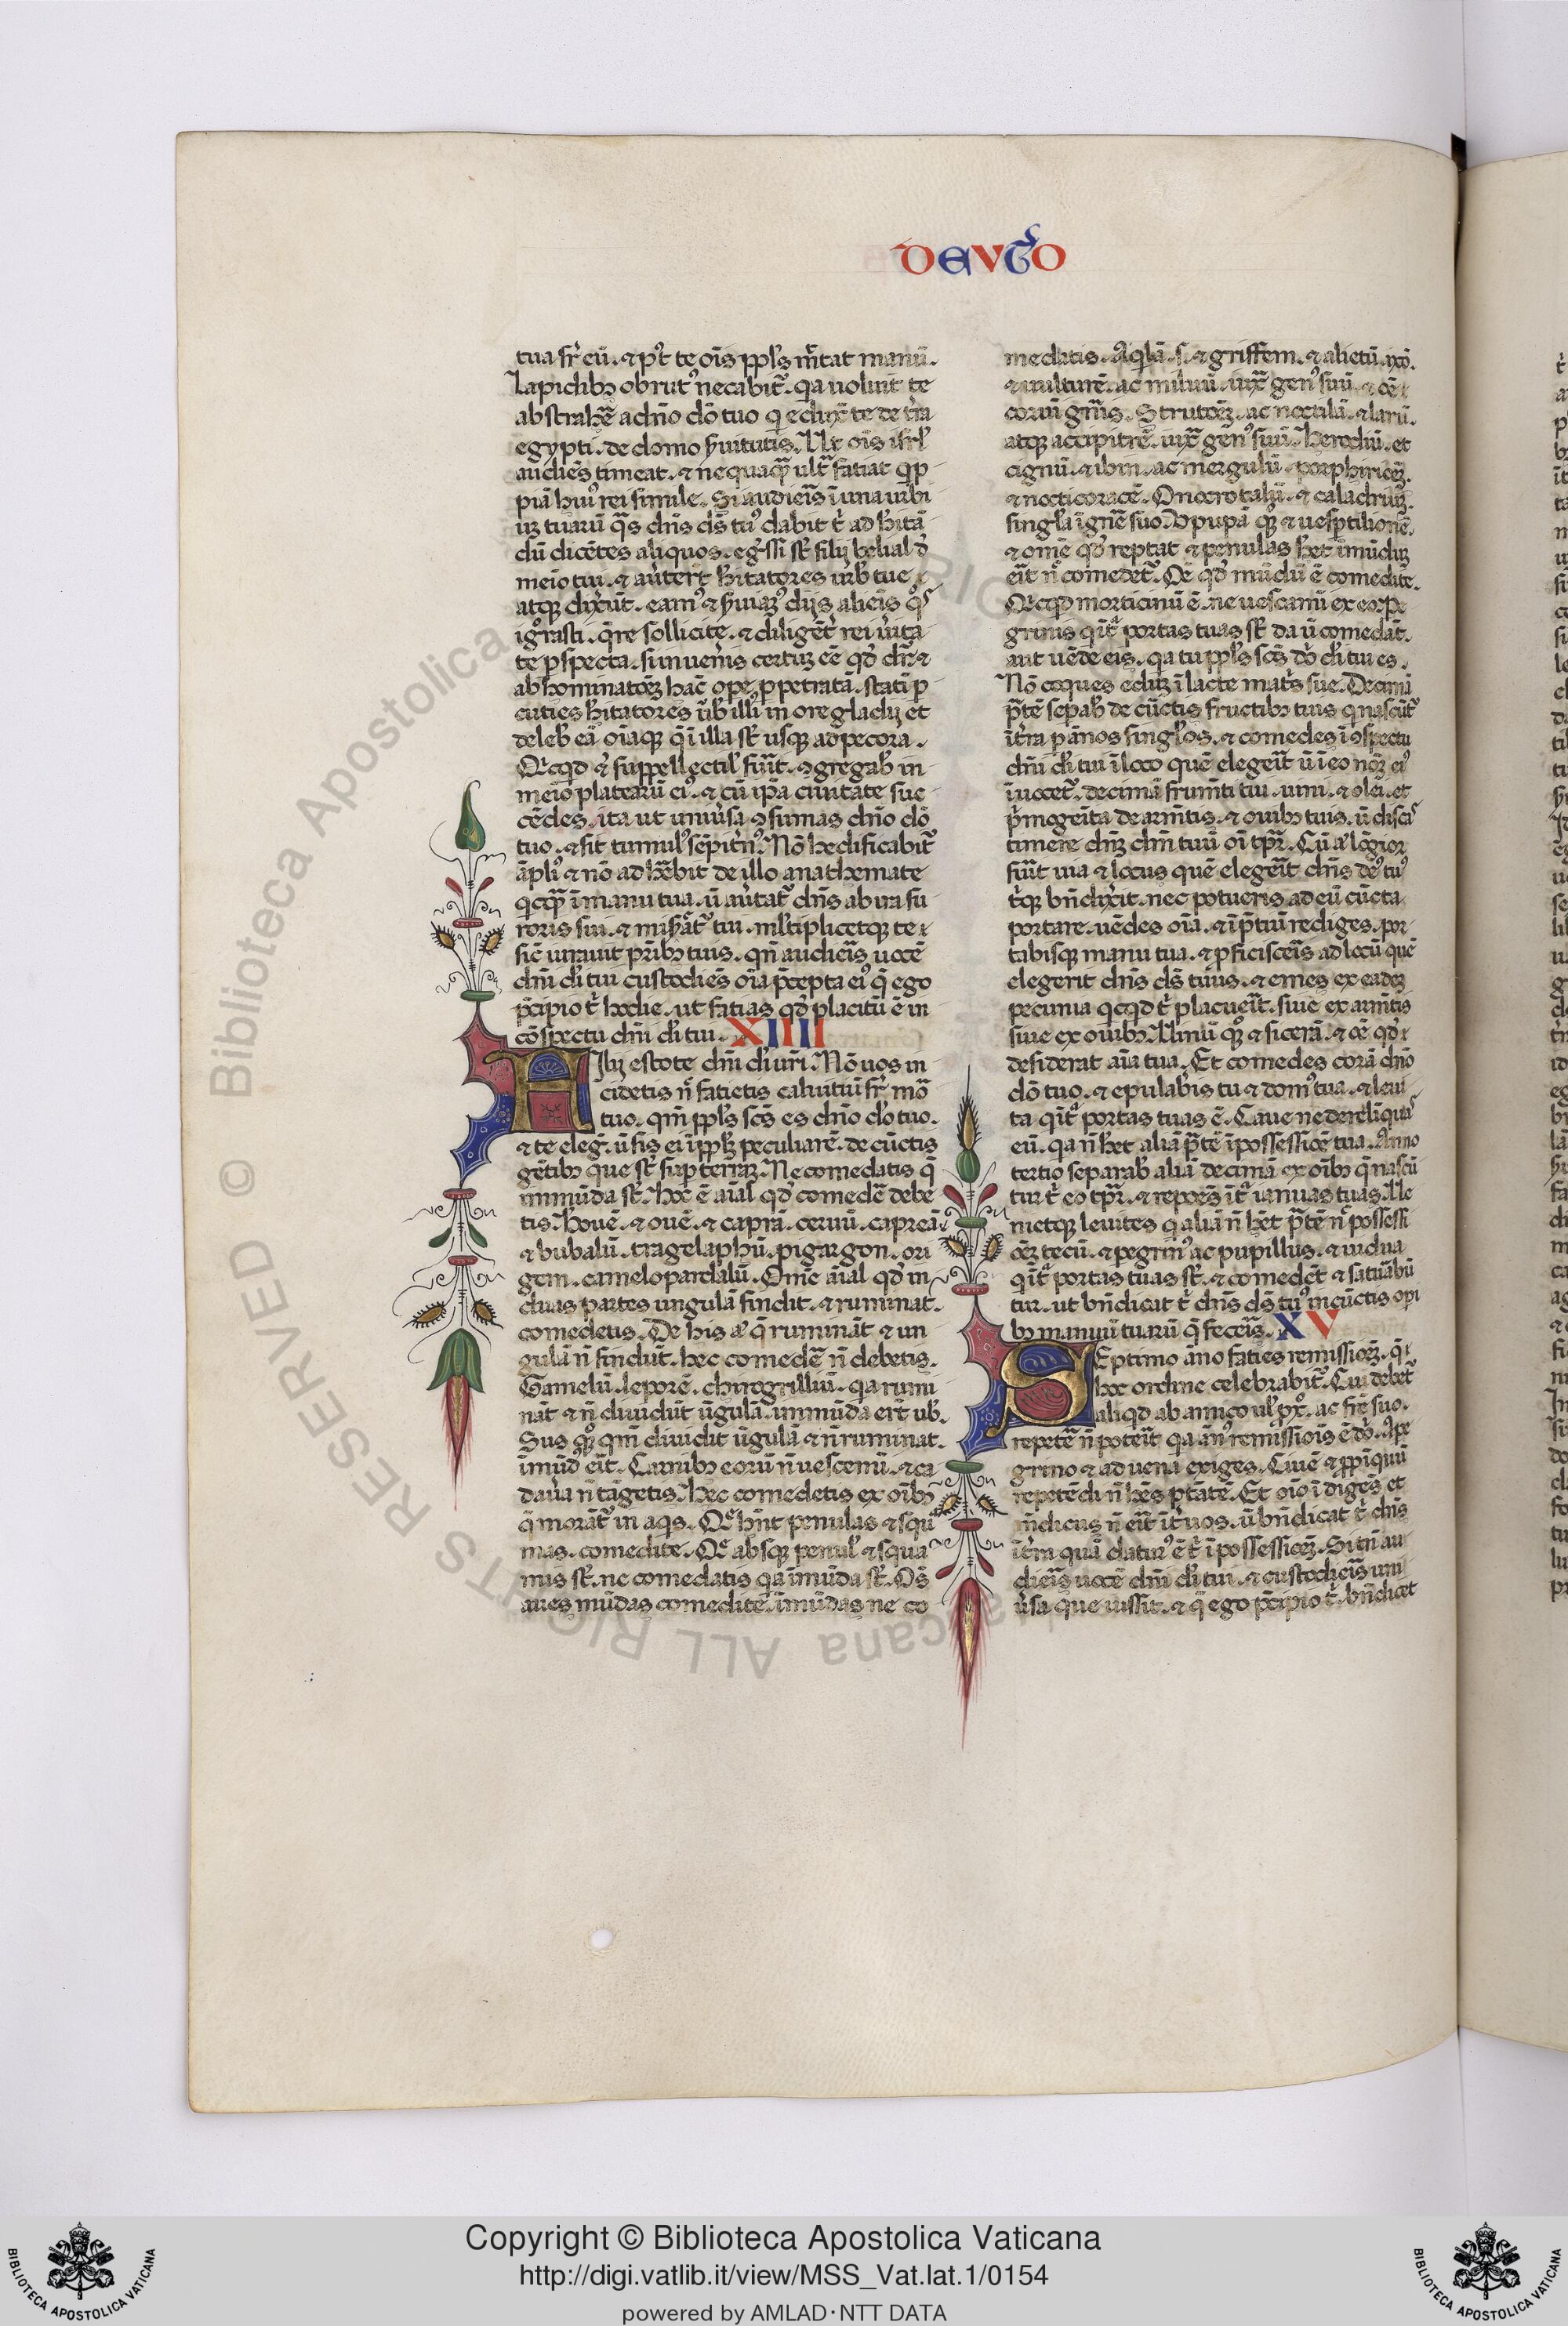 DEVTO
tua sr̄ eū. ⁊ p't te oīs ppl's mr̄tat manū.
Lapidibȝ obrut' necabit'. qa uoluit te
abstrahē̄ a dn̄o dō tuo q eduxit te de tr̄a
egypti. de domo ẜuitutis. Ut oīs isrl'
audiēs timeat. ⁊ nequaqȝ ultˢ fatiat qp
piā hui' rei simile. Si audieīs ī una urbi
uȝ tuarū qˢs dn̄s dˢ tu' dabit t' ad hītā
dū dicētes aliquos. egˢssi st̄ filij belial d'
meīo tui. ⁊ au'tert̄ hītatores urb' tue
atqȝ dixer̄ūt. eam' ⁊ ẜuiaȝ' dijs alieīs q°s
ig°rasti. qˢre sollicite. ⁊ diligēt' rei u'ita
te pspecta. si inuenīs certuȝ eē qd' dr̄ ⁊
abhominatōeȝ hāc ope ppetratā. statī p
cuties hītatores u'b' illi' in ore gladij et
deleb' eā oīaqȝ q̄ ī illa st̄ usqȝ ad pecora.
Qˢcqd ⁊ suppellectil' fuīt. ꝯgregab' in
meīo platearū ei'. ⁊ cū ipā ciuitate suc
cēdes. ita ut uniu'sa ꝯsumas dn̄o dō
tuo. ⁊ sit tumul' sēpit'n'. Nō hedificabit'
āpli' ⁊ nō adhēbit de illo anathemate
qcqȝ ī manu tua. ū au'tat' dn̄s ab ira fu
roris sui. ⁊ misˢat' tui. ml'tiplicetqȝ te ⁊
sic̄ iurauit pr̄ibȝ tuis. qn̄ audieīs uocē
dn̄i d'i tui custodieīs oīa p̄cepta ei' q̄ ego
p̄cipio t' hodie. ut fatias qd' placitū ē in
cōspectu dn̄i d'i tui. XIIII
Ilij estote dn̄i d'i ur̄i. Nō uos in
cidetis n̄ fatietis caluitiū sr̄ mō
tuo. qm̄ ppl's scs̄ es dn̄o d'o tuo.
⁊ te eleḡ. ū sis ei ī pplȝ peculiarē. de cūctis
gētibȝ que st̄ sup terraȝ. Ne comedatis q̄
inmūda st̄. Hoc ē aīal qd' comedē̄ debe
tis. Bouē. ⁊ ouē. ⁊ caprā. ceruū. capreā.
⁊ bubalū. tragelaphū. pigargon. ori
gem. camelopardalū. Omē aīal qd' in
duas partes ungulā findit. ⁊ ruminat.
comedetis. De his aˢ q̄ rumināt ⁊ un
gulā n̄ findūt. hec comedē̄ n̄ debetis.
Camelū. leporē. chirogrilliū. qa rumi
nāt ⁊ n̄ diuidūt ūgulā. inmūda ert̄ ub'.
Sus qȝ° qm̄ diuidit ūgulā ⁊ n̄ ruminat.
īmūd' eīt. Carnibȝ eorū n̄ uescemī. ⁊ ca
dau'a n̄ tāgetis. Hec comedetis ex oībȝ
q̄ morāt' in aqs. Qˢ hn̄t penulas ⁊ squā
mas. comedite. Qˢ absqȝ penul' ⁊ squa
mis st̄. ne comedatis qa īmūda st̄. Oˢs
aues mūdas comedite. īmūdas ne co
medatis. Aqˡā. s. ⁊ griffem. ⁊ alietū. ixō.
⁊ uulturē. ac miluū. iuxˢ gen' suū. ⁊ oē ⁊
coruī gn̄is. Strutōeȝ. ac noctuā. ⁊ larū.
atqȝ accipitrē. iuxˢ gen' suū. Herodiū. et
cignū. ⁊ ibin. ac mergulū. porphirioēȝ.
⁊ nocticoracē. Onocrotalū. ⁊ caladriuȝ.
singl'a ī gn̄e suo. Vpupā qȝ° ⁊ uesptilionē.
⁊ omē qd' reptat ⁊ penulas h̄et īmūduȝ
eīt n̄ comedet'. Oē qd' mūdū ē comedite.
Qˢcqd morticinū ē. ne uescamī ex eo. Pe
grinis qīt' portas tuas st̄ da ū comedāt.
aut uēde eis. qa tu ppl's scs̄ dn̄i d'i tui es.
Nō coques eduȝ ī lacte mat's sue. Decimā
p̄tē sepab' de cūctis fructibȝ tuis q nascūt'
ī t'ra p ānos singl'os. ⁊ comedes ī ꝯspectu
dn̄i d'i tui ī loco quē elegeīt ū ī eo nōȝ ei'
īuocet'. decimā frumt̄i tiu. uini. ⁊ olei. et
p̄mogeīta de armt̄is. ⁊ ouibȝ tuis. ū discaˢ
timere dn̄ȝ dn̄i tuū oī tpr̄. Cū aˢ lōgior
fuīt uia ⁊ locus quē elegeīt dn̄s de' tu'
t'qȝ bn̄dix'it. nec potueris ad eū cūcta
portare. uēdes oīa. ⁊ ī p̄tiū rediges. por
tabisqȝ manu tua. ⁊ pficisceīs ad locū quē
elegerit dn̄s dˢ tuus. ⁊ emes ex eadeȝ
pecunia qcqd t' placueīt. siue ex armt̄is
siue ex ouibȝ. Uinū qȝ° ⁊ sicerā. ⁊ oē qd' ⁊
desiderat aīa tua. Et comedes corā dn̄o
dō tuo. ⁊ epulabis tu ⁊ dom' tua. ⁊ leui
ta qīt' portas tuas ē. Caue ne derelīquaˢ
eū. qa n̄ h̄et aliā p̄tē ī possessiōe tua. Anno
tertio separab' aliā decimā ex oībȝ q̄ nascū
tur t' eo tpr̄. ⁊ repoēs īt' ianuas tuas. Ue
nietqȝ leuites q aliā n̄ h̄et p̄tē n̄ possessi
oēȝ tecū. ⁊ pegrin' ac pupillus. ⁊ uidua
qīt' portas tuas st̄. ⁊ comedēt ⁊ saturabū
tur. ut bn̄dicat t' dn̄s dˢ tu' in cūctis opi
bȝ manuū tuarū q̄ feceīs. XV
Eptimo āno faties remissioēȝ. q̄ ⁊
hoc ordine celebrabit'. Cui debet'
aliqd ab amico ul' pxˢ. ac fr̄e suo.
repetē̄ n̄ poteīt qa ān' remissiois ē dn̄i. A pe
grino ⁊ aduena exiges. Ciuē ⁊ ppīquū
repetēdi n̄ hēs p̄tātē. Et oīo ī digēs et
m̄dicus n̄ eīt īt' uos. ū bn̄dicat t' dn̄s
ī t'ra quā datur' ē t' ī possessioēȝ. Si tn̄ au
dieīs uocē dn̄i d'i tui. ⁊ custodieīs uni
u'sa que iussit. ⁊ q̄ ego p̄cipio t'. bn̄dicet
© Biblioteca Apostolica Vaticana ALL RIGHTS RESERVED
Copyright © Biblioteca Apostolica Vaticana
http://digi.vatlib.it/view/MSS_Vat.lat.1/0154
powered by AMLAD·NTT DATA
BIBLIOTECA APOSTOLICA VATICANA
BIBLIOTECA APOSTOLICA VATICANA